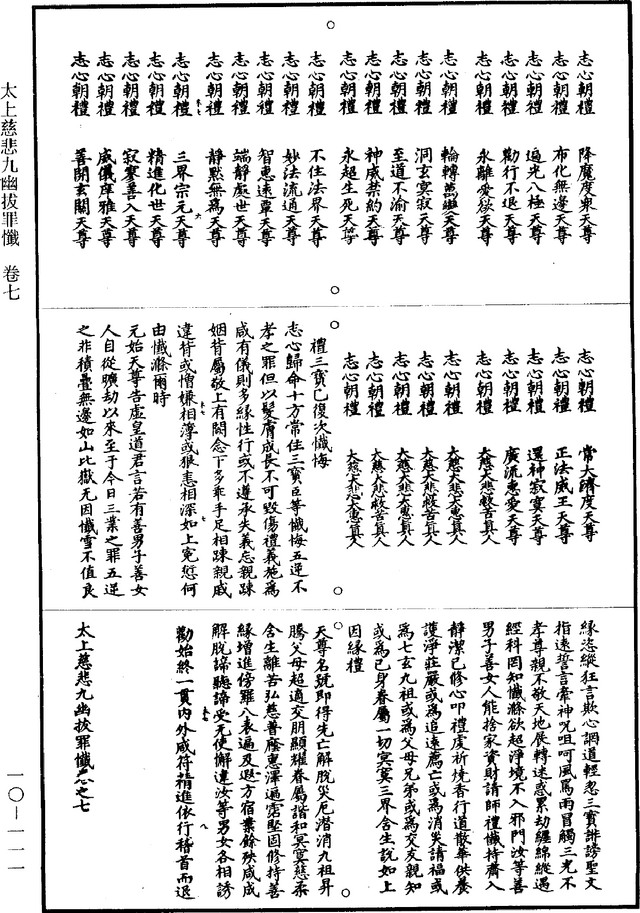 太上慈悲九幽拔罪懺　卷七
一〇—一一一
志心朝禮　降魔度衆天尊
志心朝禮　布化無邊天尊
志心朝禮　遍光八極天尊
志心朝禮　勸行不退天尊
志心朝禮　永離愛獄天尊
志心朝禮　輪轉萬變天尊
志心朝禮　洞玄寞寂天尊
志心朝禮　至道不渝天尊
志心朝禮　神威禁約天尊
志心朝禮　永超生死天尊
志心朝禮　不住法界天尊
志心朝禮　妙法流通天尊
志心朝禮　智惠遠覃天尊
志心朝禮　端靜處世天尊
志心朝禮　靜默無爲天尊
志心朝禮　三界宗元天尊
志心朝禮　精進化世天尊
志心朝禮　寂寥善入天尊
志心朝禮　威儀庠雅天尊
志心朝禮　善開玄關天尊
志心朝禮　常大濟度天尊
志心朝禮　正法威王天尊
志心朝禮　還神寂寞天尊
志心朝禮　廣流惠愛天尊
志心朝禮　大慈大悲救苦真人
志心朝禮　大慈大悲大惠真人
志心朝禮　大慈大悲救苦真人
志心朝禮　大慈大悲大惠真人
志心朝禮　大慈大悲救苦真人
志心朝禮　大慈大悲大惠真人
禮三寶已復次懺悔
志心歸命十方常住三寶臣等懺悔五逆不
孝之罪但以髮膚成長不可毀傷禮義施爲
咸有儀則多緣性行或不遵承失義忘親踈
姻背屬敬上有闕念下多乖手足相踈親戚
違背或憎嫌相薄或狠恚相深如上寃愆何
由懺滌爾時
元始天尊告虛皇道君言若有善男子善女
人自從曠劫以來至于今日三業之罪五逆
之非積疊無邊如山比嶽无因懺雪不值良
緣恣縱狂言欺心調道輕忽三寶誹謗聖文
指遠誓言牽神咒咀呵風駡雨冒觸三光不
孝尊親不敬天地展轉迷惑累劫纏綿縱遇
經科罔知懺滌欲超淨境不入邪門汝等善
男子善女人能捨家資財請師禮懺持齋入
靜潔已修心叩禮虔祈燒香行道散華供養
護淨莊嚴或爲追遠薦亡或爲消災請福或
爲七玄九祖或爲父母兄弟或爲交友親知
或爲已身眷屬一切冥寞三界含生說如上
因緣禮
天尊名號即得先亡解脫災厄潛消九祖昇
騰父母超適交朋顯耀眷屬諧和冥寞慈柔
含生離苦弘慈普應惠澤遍霑堅固修持善
緣增進傍羅八表遍及遐方宿業餘殃咸成
解脫諦聽諦受无使懈違汝等男女各相誘
勸始終一貫内外咸符精進依行稽首而退
太上慈悲九幽拔罪懺卷之七